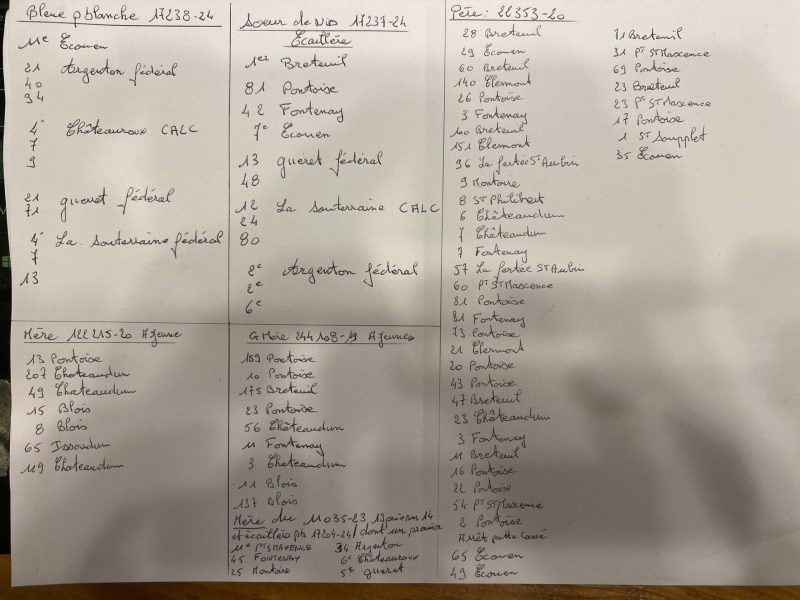 Bleue p blanche 17238-24
11e Ecouen
21 Argenton fédéral
40
94
4e Châteauroux CALC
7
9
21 gueret fédéral
71
4e La Souterraine fédéral
7
13
Soeur de nid 17237-24
Ecaillée
1er Breteuil
81 Pontoise
42 Fontenay
7e Ecouen
13 gueret fédéral
48
12 La souterraine CALC
24
80
2e Argenton fédéral
2e
6e
Père: 22353-20
28 Breteuil
29 Ecouen
60 Breteuil
140 Clermont
26 Pontoise
3 Fontenay
100 Breteuil
151 Clermont
96 La fertée St Aubin
9 Montoire
8 St Philibert
6 Châteaudun
7 Châteaudun
7 Fontenay
57 La fertée St Aubin
60 Pt St Maxence
81 Pontoise
81 Fontenay
73 Pontoise
21 Clermont
20 Pontoise
43 Pontoise
47 Breteuil
23 Châteaudun
3 Fontenay
11 Breteuil
16 Pontoise
22 Pontoise
54 Pt St Maxence
2 Pontoise
Arrêt patte cassé
65 Ecouen
49 Ecouen
71 Breteuil
31 Pt St Maxence
69 Pontoise
23 Breteuil
23 Pt St Maxence
17 Pontoise
1 St Soupplet
35 Ecouen
Mère 122215-20 A Jeune
13 Pontoise
207 Chateaudun
49 Chateaudun
15 Blois
8 Blois
65 Issoudun
119 Chateaudun
G Mère 244108-19 A Jeunes
159 Pontoise
10 Pontoise
175 Breteuil
23 Pontoise
56 Châteaudun
11 Fontenay
3 Chateaudun
11 Blois
137 Blois
Mère du 11035-23 13 prix sur 14
et écaillée pb 17204-24 / dont un premier
11e Pt St MAXENCE 34 Argenton
45 FONTENAY 6e Chateauroux
25 Montoire 5e gueret